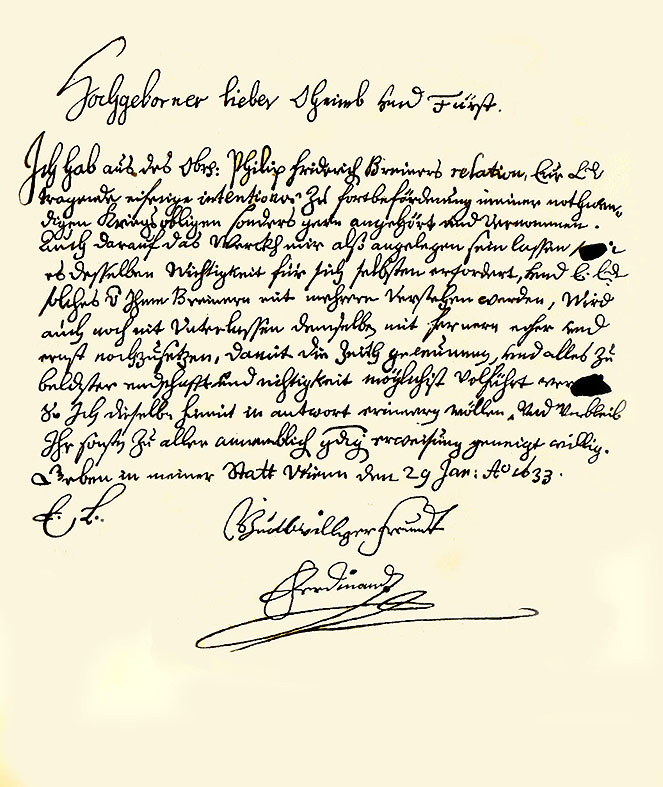 Hochgeborner lieber Oheimb vnd Fürst.
Ich hab aus des Obr: Philip Friderich Breiners relation, Eur Ld
tragende eiferige intentiones zu fortbeförderung meiner nothwen-
digen Kriegs obligen sonders gern angehört vnd vernommen.
Auch darauf das Werckh mir alß angelegen sein lassen
es desselben Wichtigkeit für sich selbsten erfordert, vnd E. Ld
solches Ihme Breinern mit mehrern verstehen werden, Wird
auch noch nit vnterlassen demselben mit fernern eifer vnd
ernst nachzusetzen, damit die Zeith gewunnen, vnd alles zu
beldister endschafft vnd richtigkeit möglichist volführt
So Ich dieselbe hiemit in antwort erinnern wöllen, Vnd Verbleib
Ihr sonsten zu aller annemblich gdig erweisung geneigt willig.
Geben in meiner Statt Wienn den 29 Jan: Ao 1633.
E. L.
Guettwilliger freundt
Ferdinand